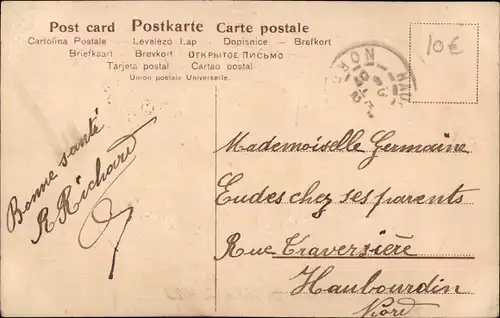 Post card Postkarte Carte postale
Cartolina Postale – Levelező Lap – Dopisnice – Brefkort
Briefkaart – Brevkort – ОТКРЫТОЕ ПИСЬМО
Tarjeta postal – Cartao postal
Union postale Universelle.
10€
Bonne santé
R Richard
Mademoiselle Germaine
Eudes chez ses parents
Rue Traversière
Haubourdin
Nord